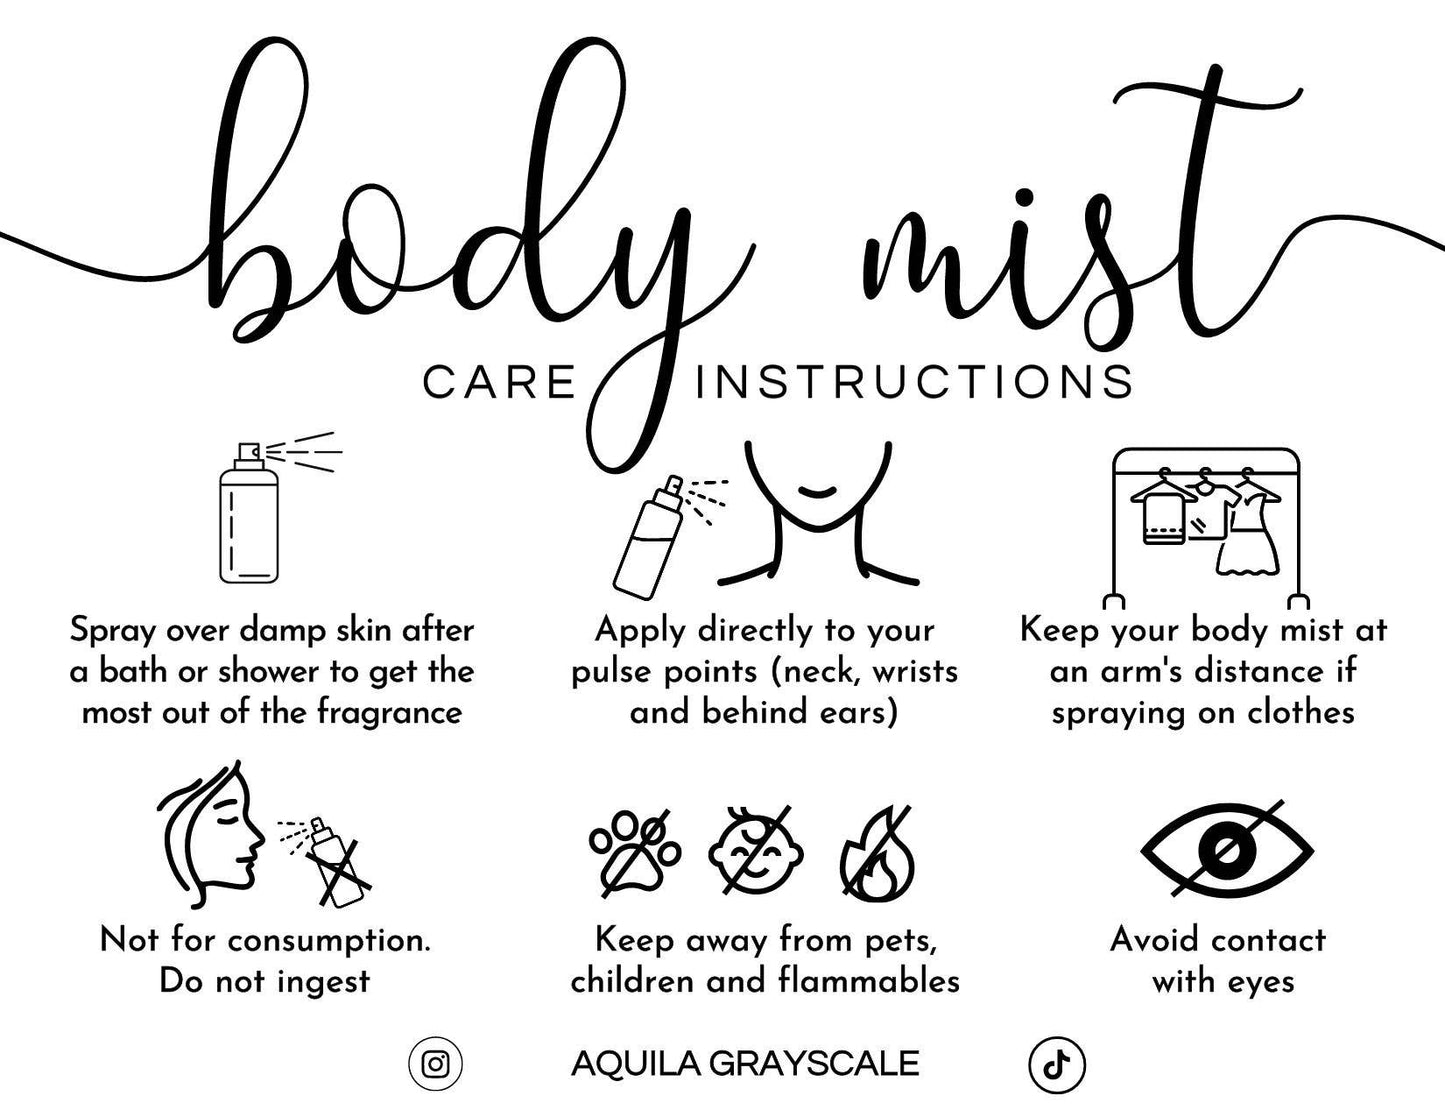 body mist
CARE INSTRUCTIONS
Spray over damp skin after
a bath or shower to get the
most out of the fragrance
Apply directly to your
pulse points (neck, wrists
and behind ears)
Keep your body mist at
an arm's distance if
spraying on clothes
Not for consumption.
Do not ingest
Keep away from pets,
children and flammables
Avoid contact
with eyes
AQUILA GRAYSCALE